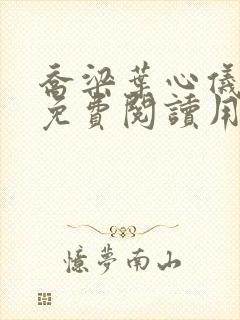 喬梁葉心儀
免費閱讀用
憶夢南山